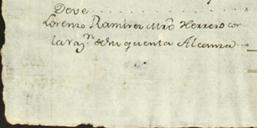 Deve . . . . . . . . . . . . . .
Lorenzo Ramirez Mrô Herrero con
la raz.n de su quenta Alcanza